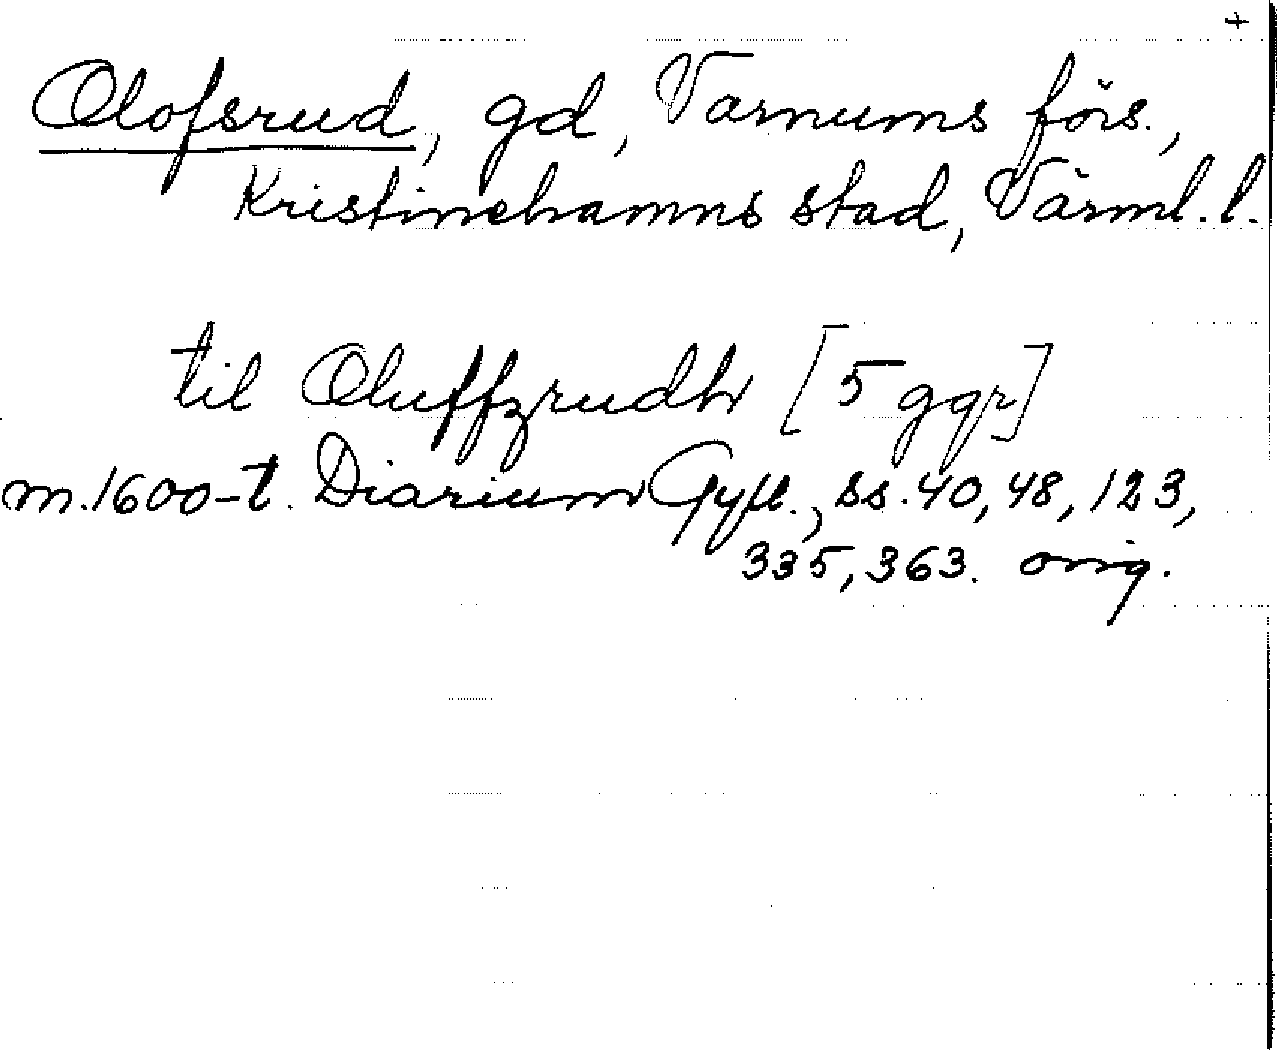 +
Olofsrud, gd, Varnums förs.,
Kristinehamns stad, Värml. l.
til Oluffzrudh [5 ggr]
m. 1600-t. Diarium Gyll., ss. 40, 48, 123,
335, 363. orig.